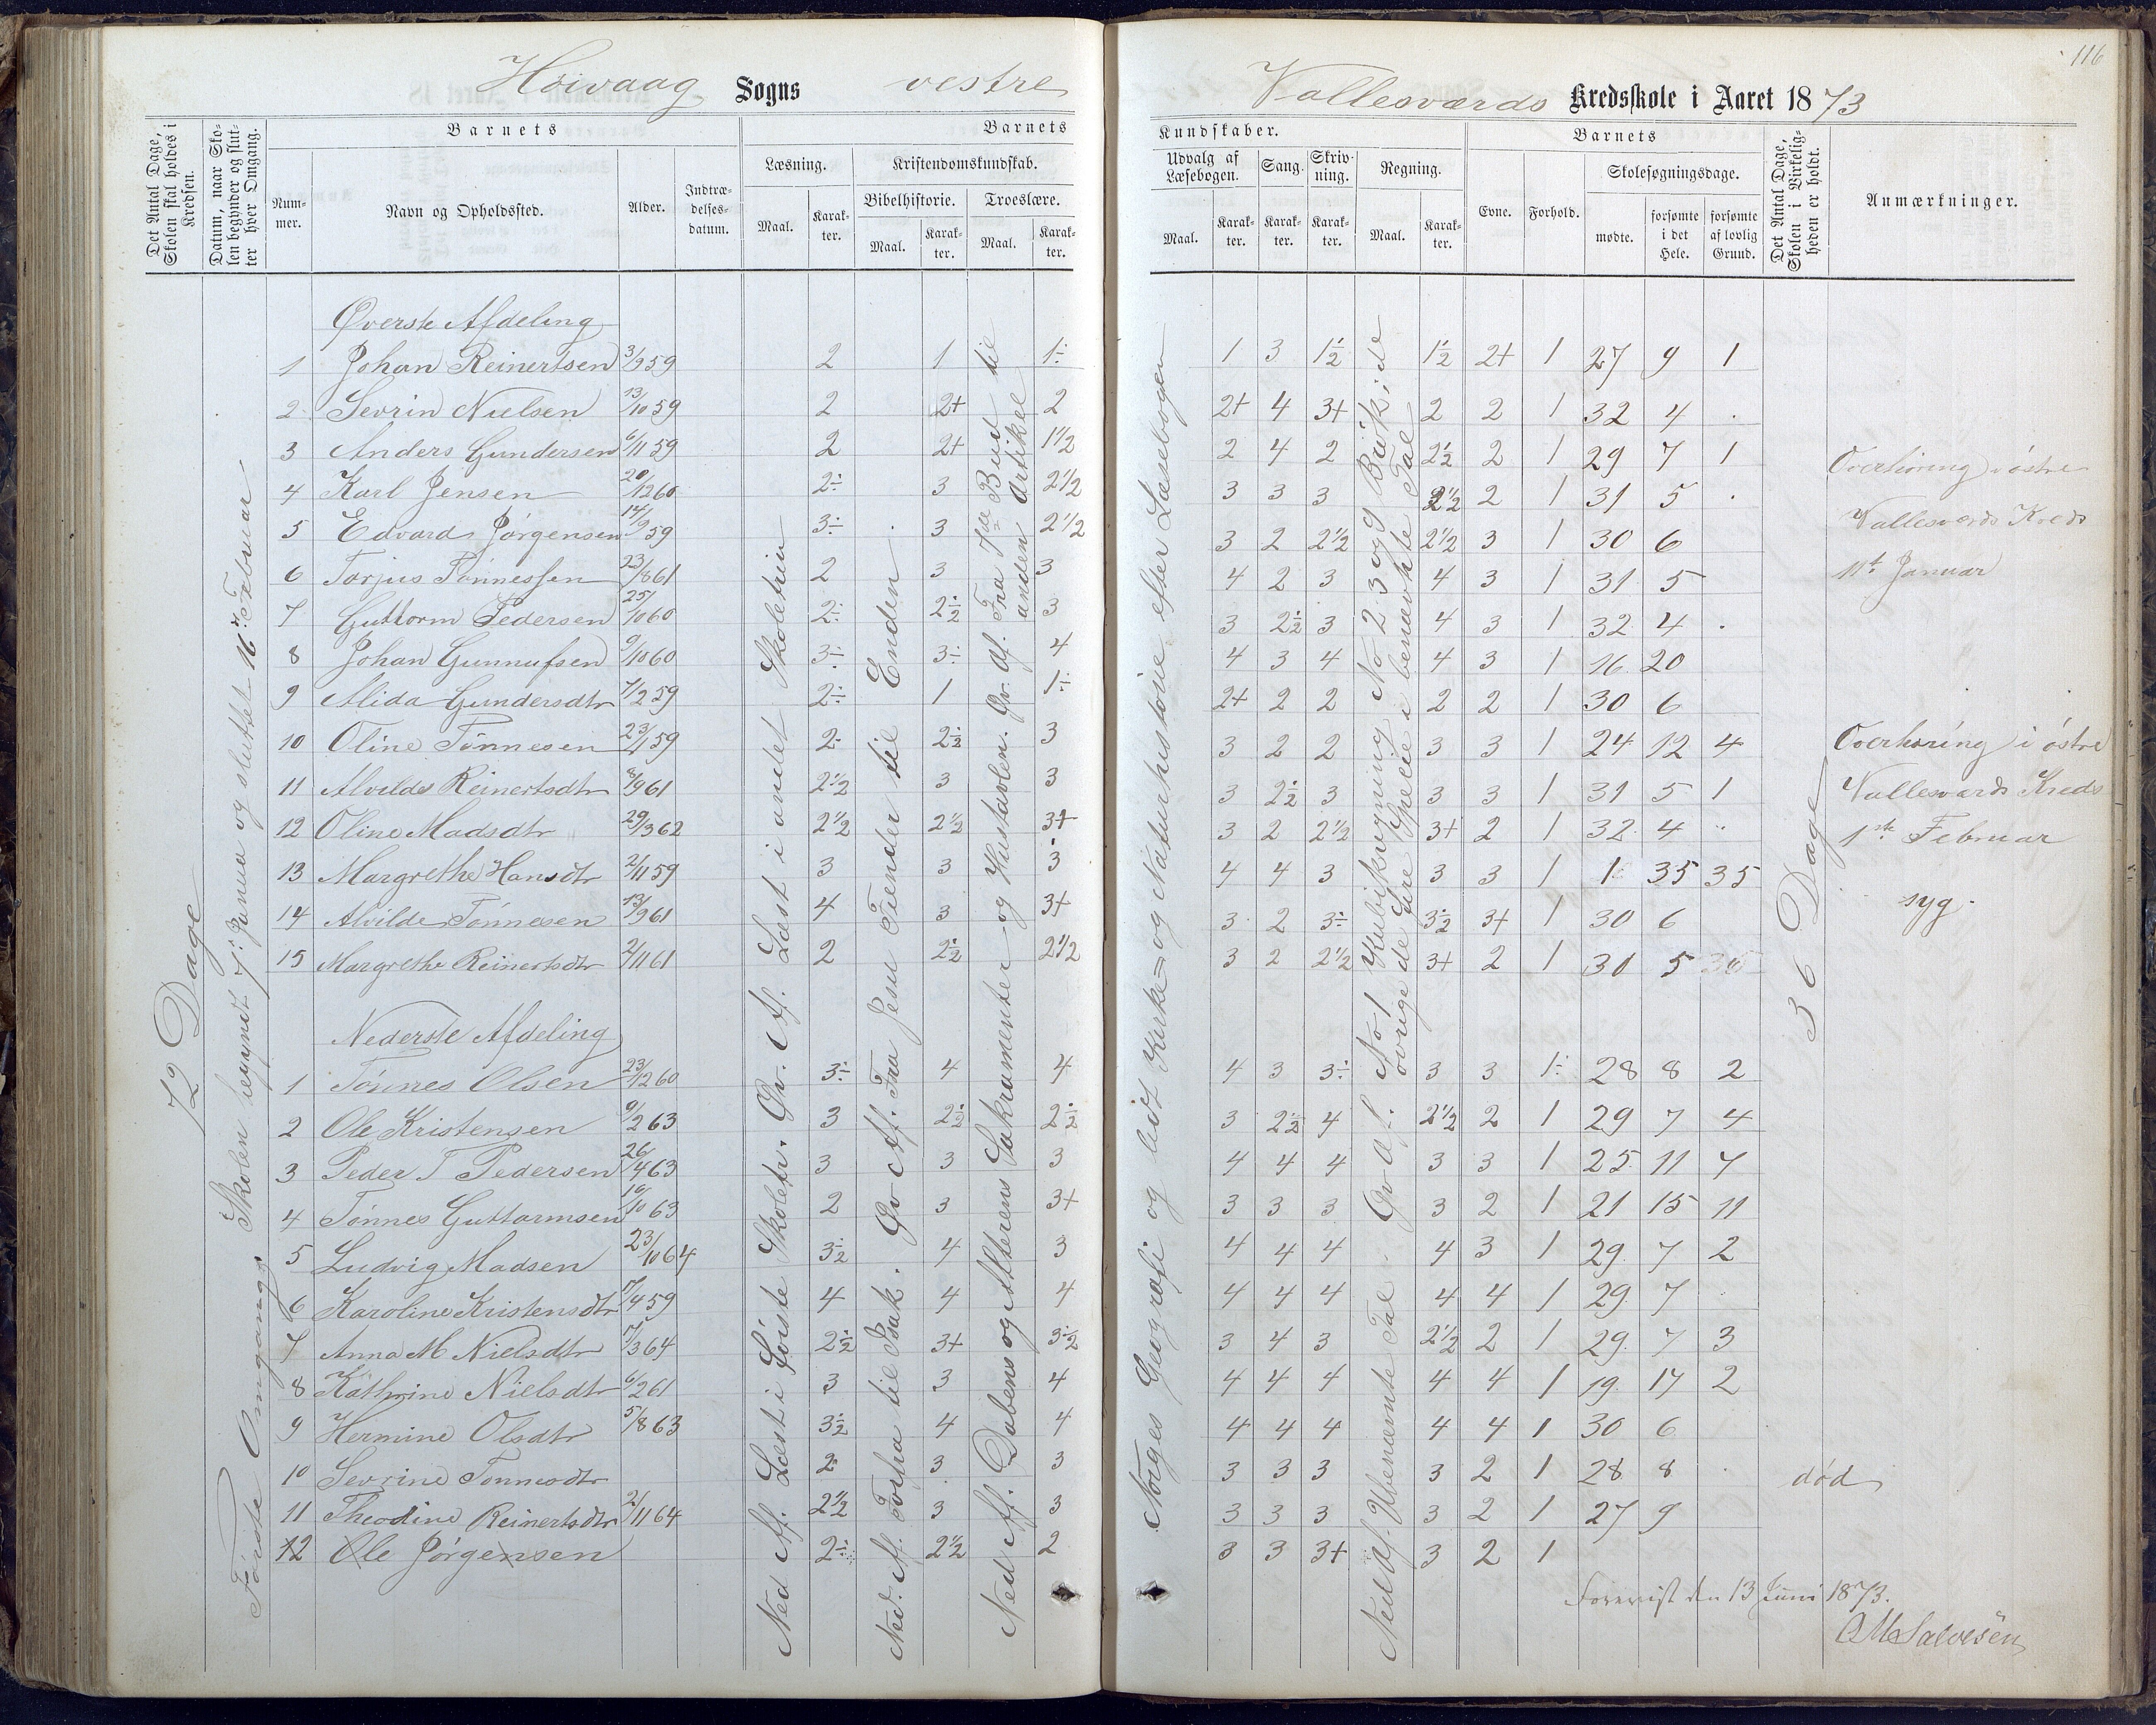 116
Høivaag Sogns vestre Vallesværds Kredsskole i Aaret 1873
Det Antal Dage, Skolen skal holdes i Kredsen.
Datum, naar Skolen begynder og slutter hver Omgang.
Barnets
Nummer.
Navn og Opholdssted.
Alder.
Indtrædelses-datum.
Barnets
Læsning.
Maal.
Karakter.
Kristendomskundskab.
Bibelhistorie.
Maal.
Karakter.
Troeslære.
Maal.
Karakter.
Kundskaber.
Udvalg af Læsebogen.
Maal.
Karakter.
Sang.
Karakter.
Skrivning.
Karakter.
Regning.
Maal.
Karakter.
Barnets
Evne.
Forhold.
Skolesøgningsdage.
mødte.
forsømte i det Hele.
forsømte af lovlig Grund.
Det Antal Dage, Skolen i Virkeligheden er holdt.
Anmærkninger.
72 Dage
Første Omgang. Skolen begyndt 7de Janua og sluttet 16de Februar
Øverste Afdeling
1 Johan Reinertsen 3/9 59 2 1 1÷ 1 3 1½ 1½ 2+ 1 27 9 1
2 Sevrin Nielsen 13/10 59 2 2+ 2 2+ 4 3+ 2 2 1 32 4 .
3 Anders Gundersen 6/11 59 2 2+ 1½ 2 4 2 2½ 2 1 29 7 1
4 Karl Jensen 20/12 60 2÷ 3 2½ 3 3 3 2½ 2 1 31 5 .
5 Edvard Jørgensen 14/9 59 3÷ 3 2½ 3 2 2½ 2½ 3 1 30 6
6 Torjus Tønnessen 23/8 61 2 3 3 4 2 3 4 3 1 31 5
7 Guttorm Pedersen 25/10 60 2÷ 2½ 3 3 2½ 3 4 3 1 32 4 .
8 Johan Gunnufsen 9/10 60 3÷ 3÷ 4 4 3 4 4 3 1 16 20
9 Alida Gundersdtr 7/2 59 2÷ 1 1÷ 2+ 2 2 2 2 1 30 6
10 Oline Tønnesen 23/1 59 2÷ 2½ 3 3 2 2 3 3 1 24 12 4
11 Alvilde Reinertsdtr 8/9 61 2½ 3 3 3 2½ 3 3 3 1 31 5 1
12 Oline Madsdtr 29/3 62 2½ 2½ 3+ 3 2 2½ 3+ 2 1 32 4 "
13 Margrethe Hansdtr 2/11 59 3 3 3 4 4 3 3 3 1 1 35 35
14 Alvilde Tønnesen 13/9 61 4 3 3+ 3 2 3÷ 3½ 3+ 1 30 6
15 Margrethe Reinertsdtr 2/11 61 2 2½ 2½ 3 2 2½ 3+ 2 1 31 5
Nederste Afdeling
1 Tønnes Olsen 23/12 60 3÷ 4 4 4 3 3÷ 3 3 1÷ 28 8 2
2 Ole Kristensen 9/2 63 3 2½ 2½ 3 2½ 4 2½ 2 1 29 7 4
3 Peder T Pedersen 26/4 63 3 3 3 4 4 4 3 3 1 25 11 7
4 Tønnes Guttormsen 10/10 63 2 3 3+ 3 3 3 3 2 1 21 15 11
5 Ludvig Madsen 23/10 64 3½ 4 3 4 4 4 4 3 1 29 7 2
6 Karoline Kristensdtr 17/4 59 4 4 4 4 4 4 4 4 1 29 7
7 Anna M Nielsdtr 17/3 64 2½ 3+ 3½ 3 4 3 2½ 2 1 29 7 3
8 Kathrine Nielsdtr 6/2 61 3 3 4 4 4 4 4 4 1 19 17 2
9 Hermine Olsdtr 5/8 63 3½ 4 4 4 4 4 4 4 1 30 6
10 Sevrine Tønnesdtr 2 3 3 3 3 3 3 2 1 28 8 .
11 Theodine Reinertsdtr 2/11 64 2½ 3 3 3 3 3 3 2 1 27 9
12 Ole Jørgensen 2÷ 2½ 2 3 3 3+ 3 2 1
Ned Af. Læst i første Skoletr. Øv. Af. Læst i andet Skoletrin
Ned. Af. Josefa til Isak. Øv Af. Fra Jesu Fiender til Enden.
Ned Af. Dabens og Alterens Sakramenter og Hustavlen. Øv. Af. Fra 7de Bud til anden Artikel
Norges Geografi og lidt Kirke= og Naturhistorie efter Læsebogen
Ned Af. Ubenævnte Tal. Øv Af. No 1 Kubikregning No 2 3 og Brøk i de øvrige de fire Specie i benævnte Tal
36 Dage
Overhøring i østre
Vallesværds Kreds
11te Januar
Overhøring i østre
Vallesværds Kreds
1ste Februar
syg
død
Forevist den 13 Juni 1873.
O M Salvesen